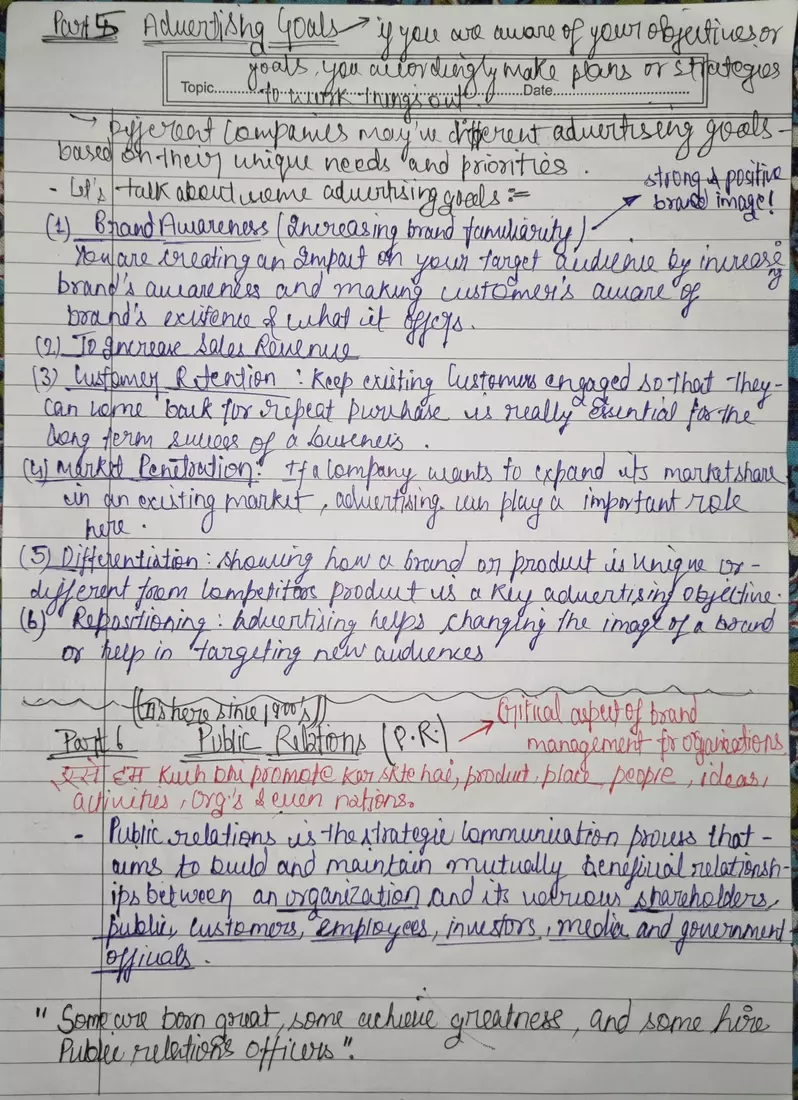 Part 5 Advertising Goals → if you are aware of your objectives or
goals, you accordingly make plans or strategies
to work things out.
Topic..........Date..........
→ Different Companies may've different advertising goals -
based on their unique needs and priorities.
- Let's talk about some advertising goals :=
strong & positive
brand image!
(1) Brand Awareness (Increasing brand familiarity)
You are creating an Impact on your target audience by increasing
brand's awareness and making customer's aware of
brand's existence & what it offers.
(2) To Increase Sales Revenue
(3) Customer Retention : Keep existing Customers engaged so that they -
can come back for repeat purchase is really essential for the
long term success of a business.
(4) Market Penetration: If a Company wants to expand its market share
in an existing market, advertising can play a important role
here.
(5) Differentiation : showing how a brand or product is unique or -
different from Competitors product is a key advertising objective.
(6) Repositioning : Advertising helps changing the image of a brand
or help in targeting new audiences
(Is here since 1900's)
Part 6 Public Relations (P.R.) → Critical aspect of brand
management for organizations.
इससे हम kuch bhi promote kar skte hai, product, place, people, ideas,
activities, org's & even nations.
- Public relations is the strategic Communication process that -
aims to build and maintain mutually beneficial relationsh-
ips between an organization and its various shareholders,
public, customers, employees, investors, media and government
officials.
"Some are born great, some achieve greatness, and some hire
Public relations officers".